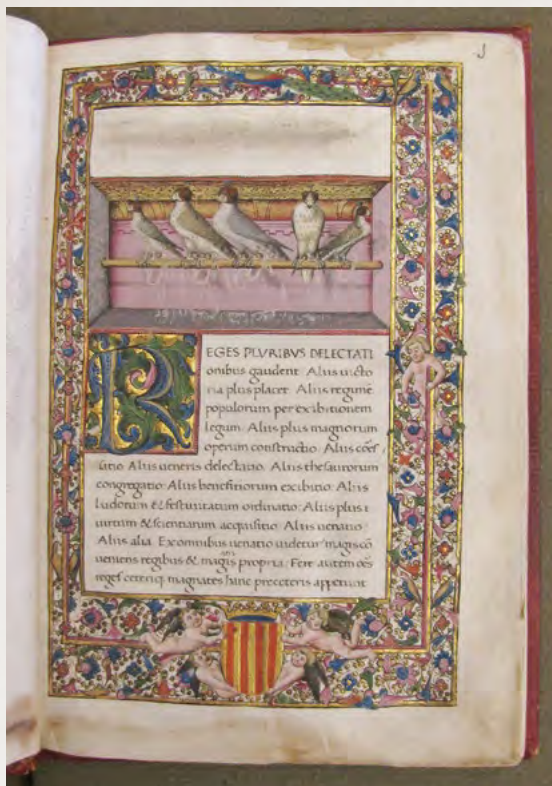 J
REGES PLURIBVS DELECTATI
onibus gaudent Alius uicto
ria plus placet Aliis regimē
populorum per exibitionem
legum Aliis plus magnorum
operum constructio Aliis cōes
tio Aliis ueneris delectatio Aliis thesaurorum
congregatio Aliis benefitiorum exibitio Aliis
ludorum & festiuitatum ordinatio Aliis plus
uirtum & scientiarum acquisitio Aliis uenatio
Aliis alia Ex omnibus uenatio uidetur magis cō
ueniens regibus & magis propria Fere autem oēs
reges ceteriq magnates hanc preceteris appetunt